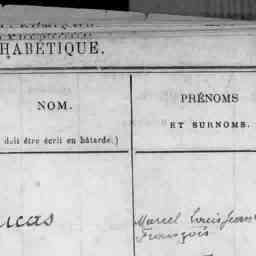 HABÉTIQUE.
NOM.
PRÉNOMS
ET SURNOMS.
doit être écrit en bâtarde.)
ucas
Marcel Louis Jean
François